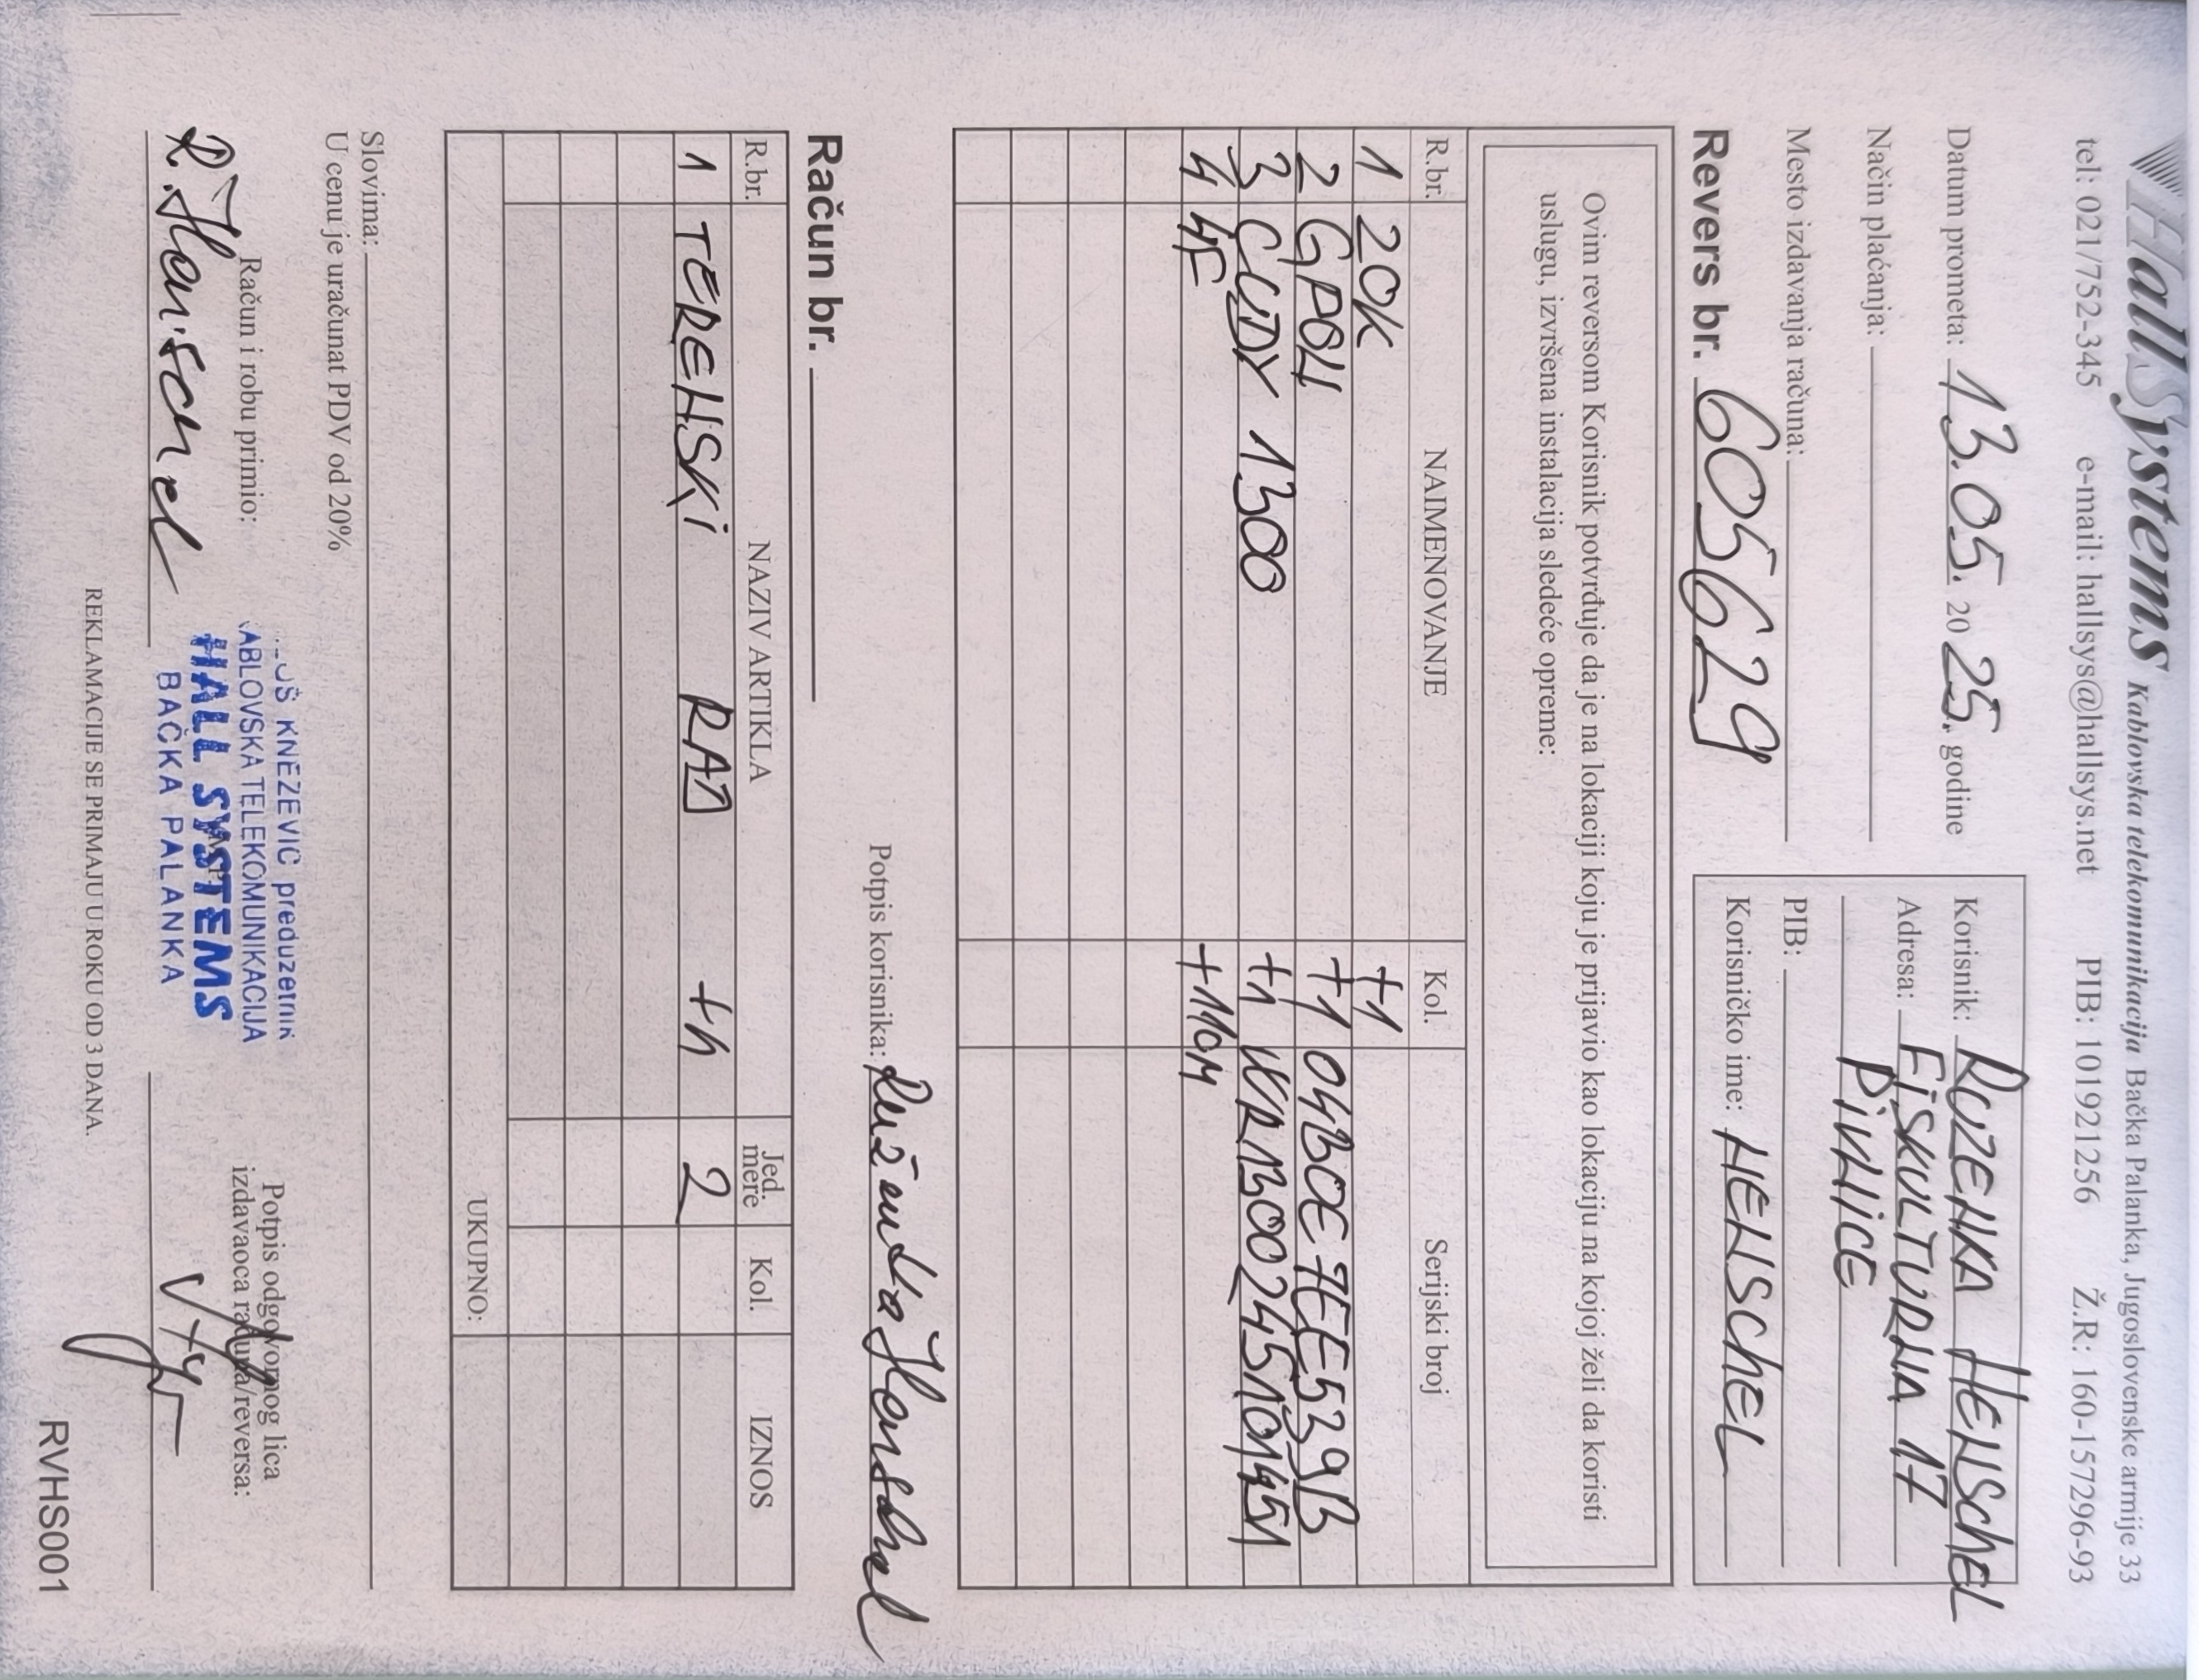 HallSystems Kablovska telekomunikacija Bačka Palanka, Jugoslovenske armije 33
tel: 021/752-345 e-mail: hallsys@hallsys.net PIB: 101921256 Ž.R: 160-157296-93
Datum prometa: 13.05. 20 25. godine
Način plaćanja:
Mesto izdavanja računa:
Revers br. 605629
Korisnik: RUZENKA HENSCHEL
Adresa: FISKULTURNA 17
PIVNICE
PIB:
Korisničko ime: HENSCHEL
Ovim reversom Korisnik potvrđuje da je na lokaciji koju je prijavio kao lokaciju na kojoj želi da koristi
uslugu, izvršena instalacija sledeće opreme:
R.br. NAIMENOVANJE Kol. Serijski broj
1 2OK +1
2 GPON +1 04BCE7EE539B
3 CUDY 1300 +1 WR1300245101451
4 4F +110M
Potpis korisnika: Ruženka Henschel
Račun br.
R.br. NAZIV ARTIKLA Jed. mere Kol. IZNOS
1 TERENSKI RAD +h 2
UKUPNO:
Slovima:
U cenu je uračunat PDV od 20%
Račun i robu primio:
R. Henschel
KNEŽEVIĆ preduzetnik
ABLOVSKA TELEKOMUNIKACIJA
HALL SYSTEMS
BAČKA PALANKA
Potpis odgovornog lica
izdavaoca računa/reversa:
REKLAMACIJE SE PRIMAJU U ROKU OD 3 DANA.
RVHS001